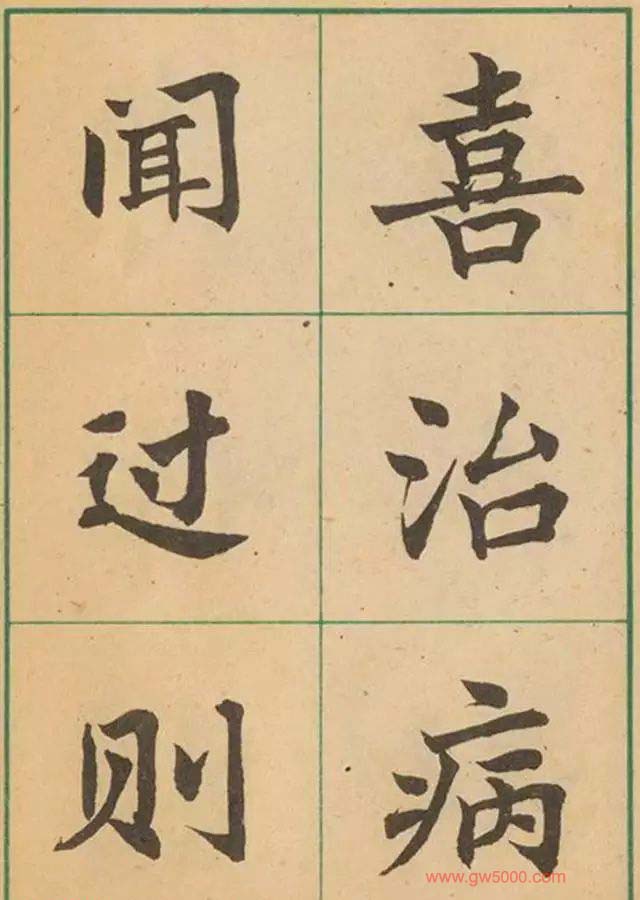 喜治病
闻过则
www.gw5000.com